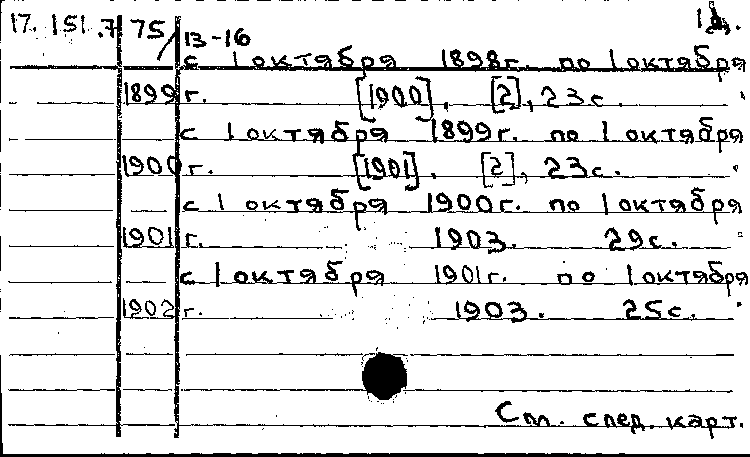 17.151.7/75/13-16 1д.
с 1 октября 1898г. по 1 октября
1899г. [1900]. [2], 23с.
с 1 октября 1899г. по 1 октября
1900г. [1901]. [2], 23с.
с 1 октября 1900г. по 1 октября
1901г. 1903. 29с.
с 1 октября 1901г. по 1 октября
1902г. 1903. 25с.
См. след. карт.